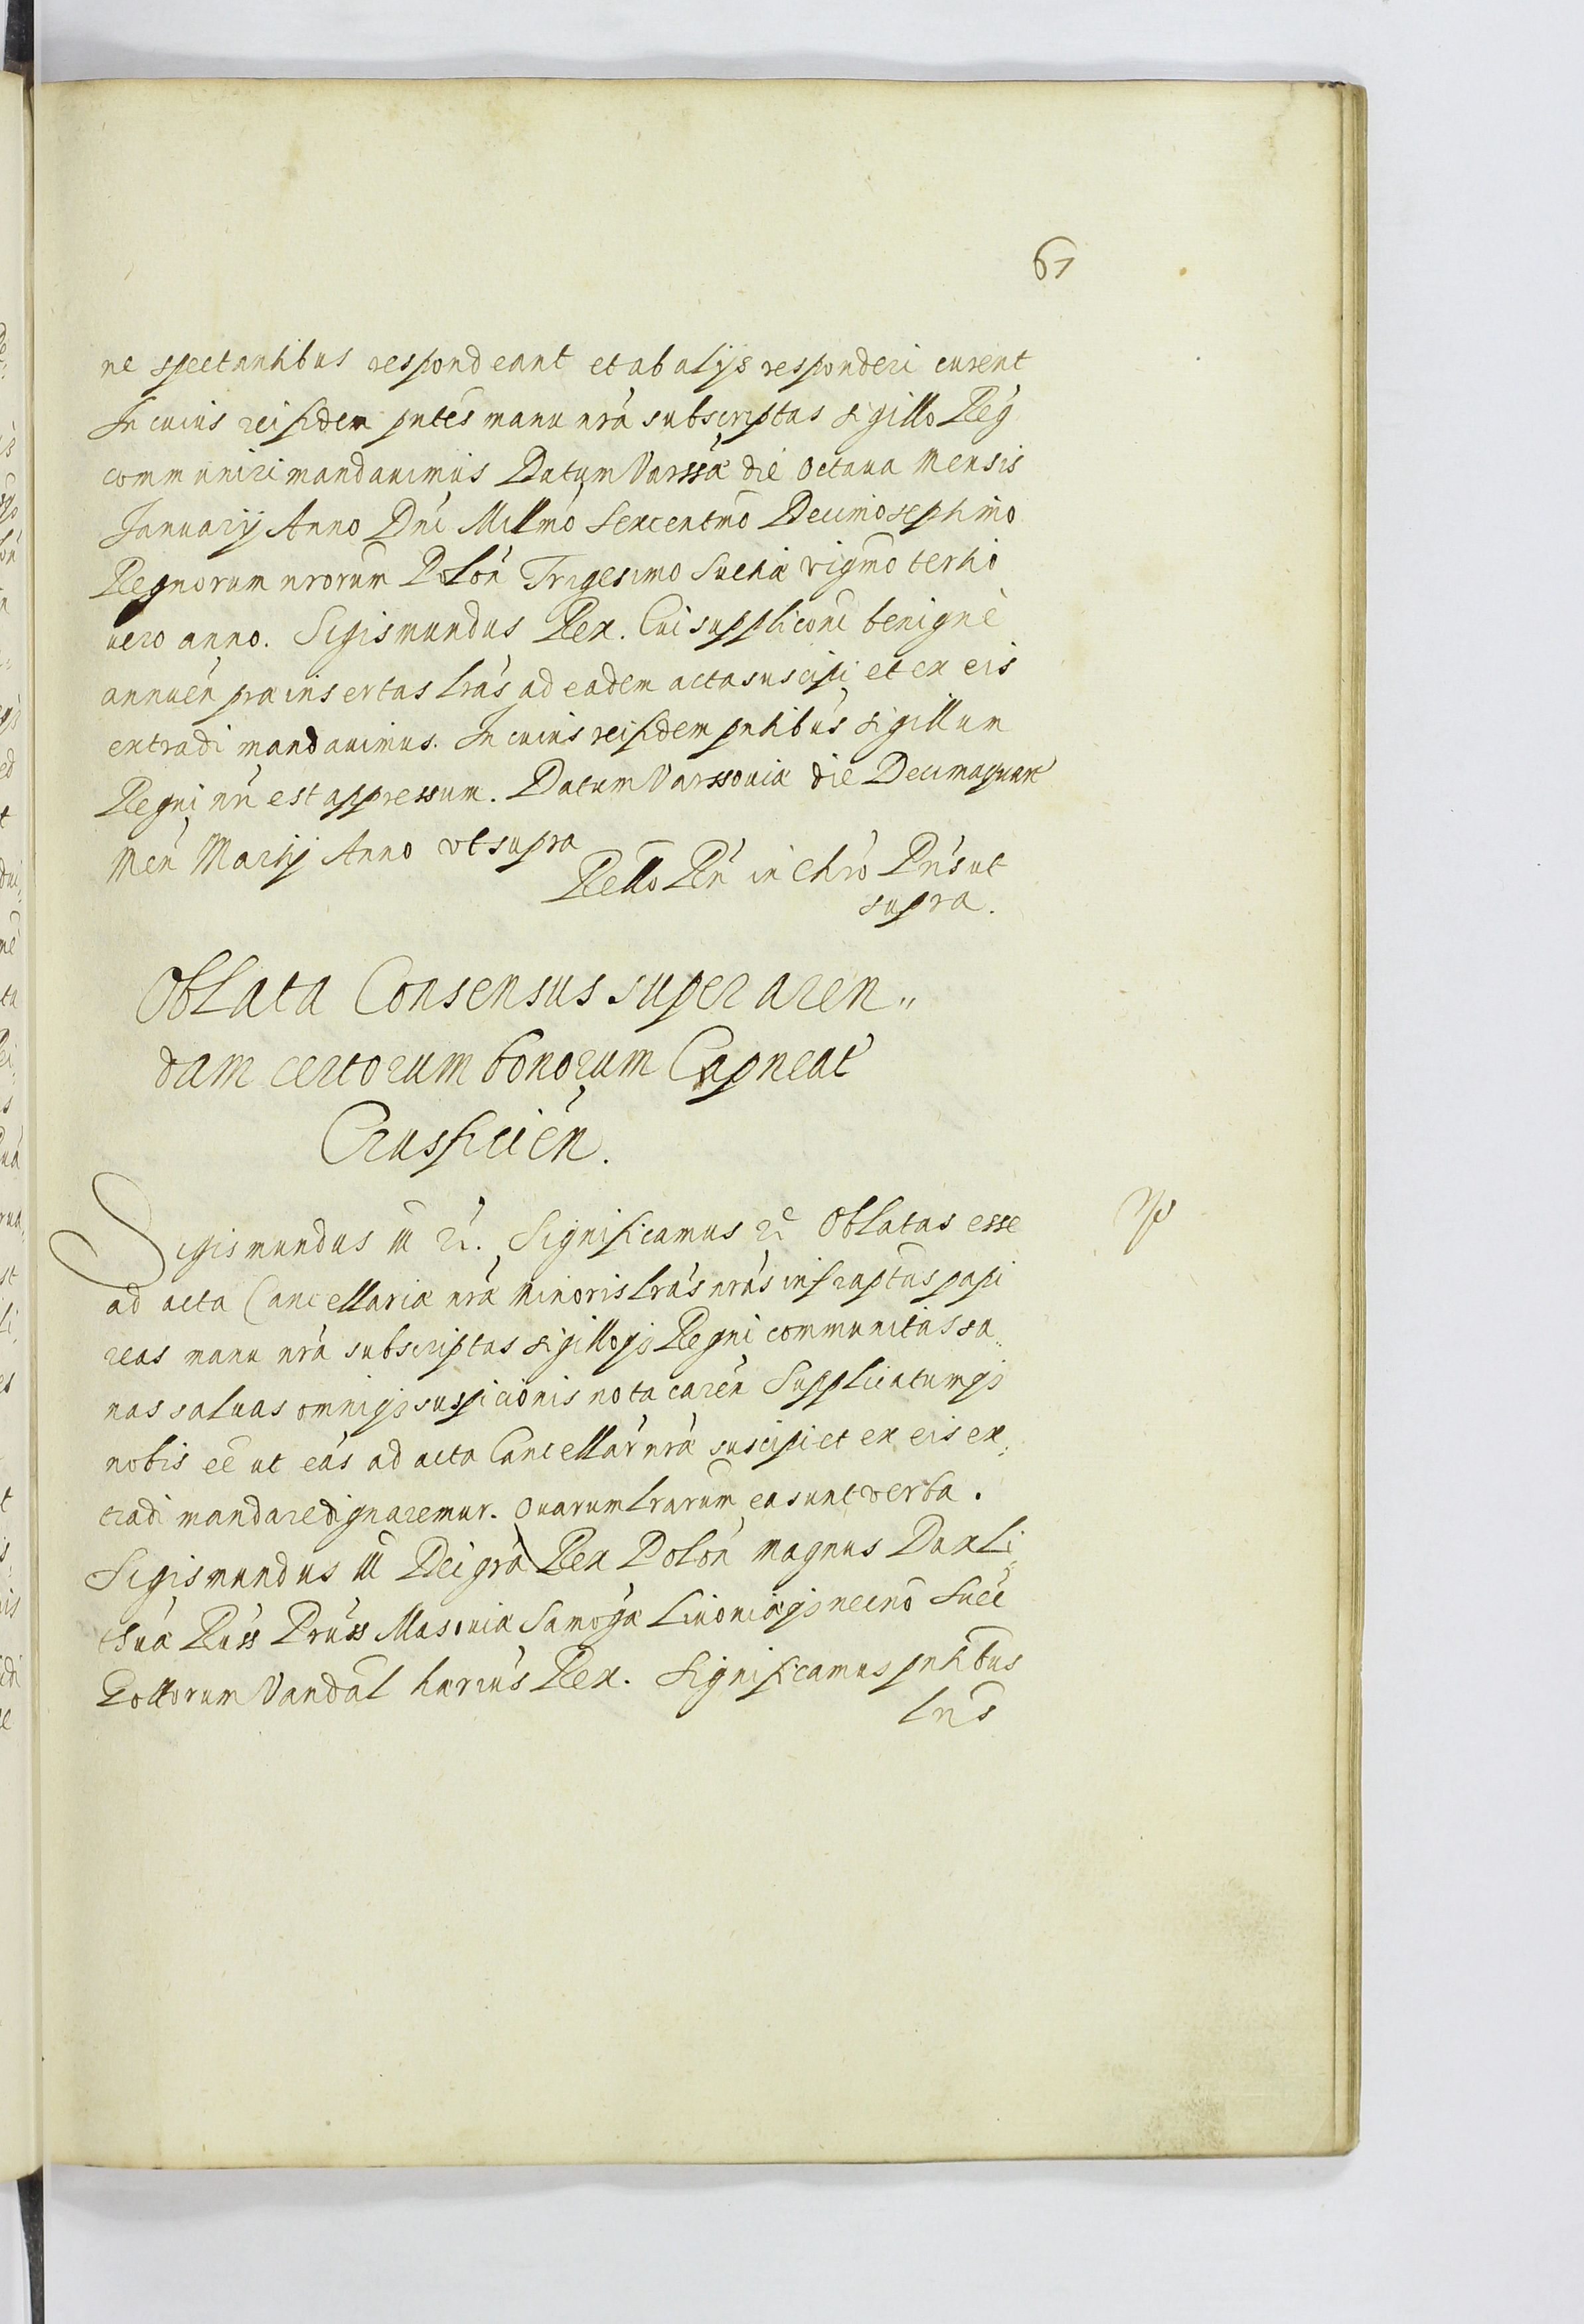 61
ne spectantibus respondeant et ab alijs responderi curent
In cuius rei fidem pntes manu nra subscriptas sigillo Reg
communiri mandauimus Datum Varssa die octaua Mensis
Januarij Anno Dni Millmo Sexcentmo Decimoseptimo
Regnorum nrorum Polon Trigesimo Suetiæ vigmo tertio
uero anno. Sigismundus Rex. Cui suppliconi benigne
annuen præinsertas lras ad eadem acta suscipi et ex eis
extradi mandauimus. In cuius rei fidem pntibus sigillum
Regni nri est appressum. Datum Varssouiæ die Decimaquart
Men Martij Anno vt supra
Rello Rn in Chro Pris ut
supra.
Oblata Consensus super aren„
dam certorum bonorum Capneat
Crusficien.
Sigismundus III Significamus Oblatas esse
ad acta Cancellariæ nræ Minoris lras nras infraptas papi
reas manu nra subscriptas sigilloqz Regni communitas sa„
nas saluas omniqz suspicionis nota caren Supplicatumqz
nobis eē ut eas ad acta Cancellar nræ suscipi et ex eis ex„
tradi mandare dignaremur. Quarum lrarum ea sunt verba.
Sigismundus III Dei gra Rex Polon magnus Dux Li„
thuæ Russ Pruss Masouiæ Samogæ Liuoniæqz necno Suec
Gottorum Vandal hærius Rex. Significamus pntibus
lris